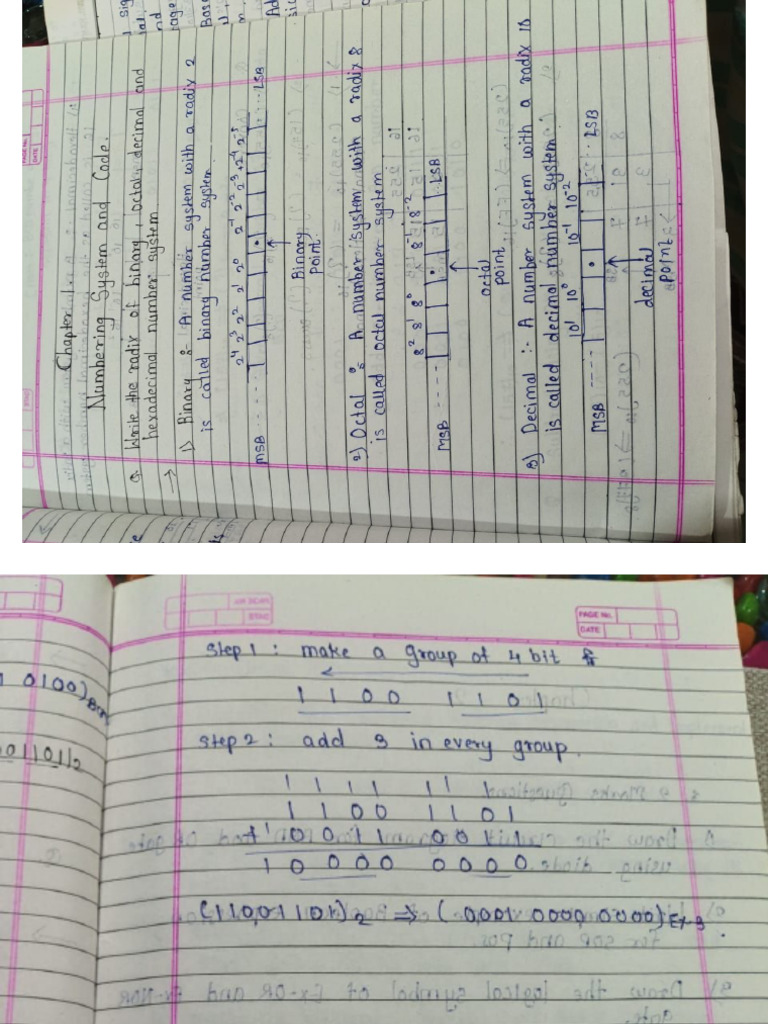 Chapter 1
Numbering System and Code.
Q. Write the radix of binary, octal, decimal and
hexadecimal number system
→
1) Binary :- A number system with a radix 2
is called binary number system.
2⁴ 2³ 2² 2¹ 2⁰ 2⁻¹ 2⁻² 2⁻³ 2⁻⁴ 2⁻⁵
MSB ..... LSB
Binary
point.
2) Octal : A number system with a radix 8
is called octal number system
8² 8¹ 8⁰ 8⁻¹ 8⁻²
MSB ---- LSB
octal
point
3) Decimal :- A number system with a radix 10
is called decimal number system.
10¹ 10⁰ 10⁻¹ 10⁻²
MSB ---- LSB
decimal
point
PAGE No.
DATE
0100)
01101)2
Step 1 : make a group of 4 bit
1 1 0 0 1 1 0 1
Step 2 : add 3 in every group.
1 1 1 1 1 1 1
1 1 0 0 1 1 0 1
+ 0 0 1 1 0 0 1 1
1 0 0 0 0 0 0 0 0
(11001101)2 ⇒ (0001 0000 0000)Ex-3